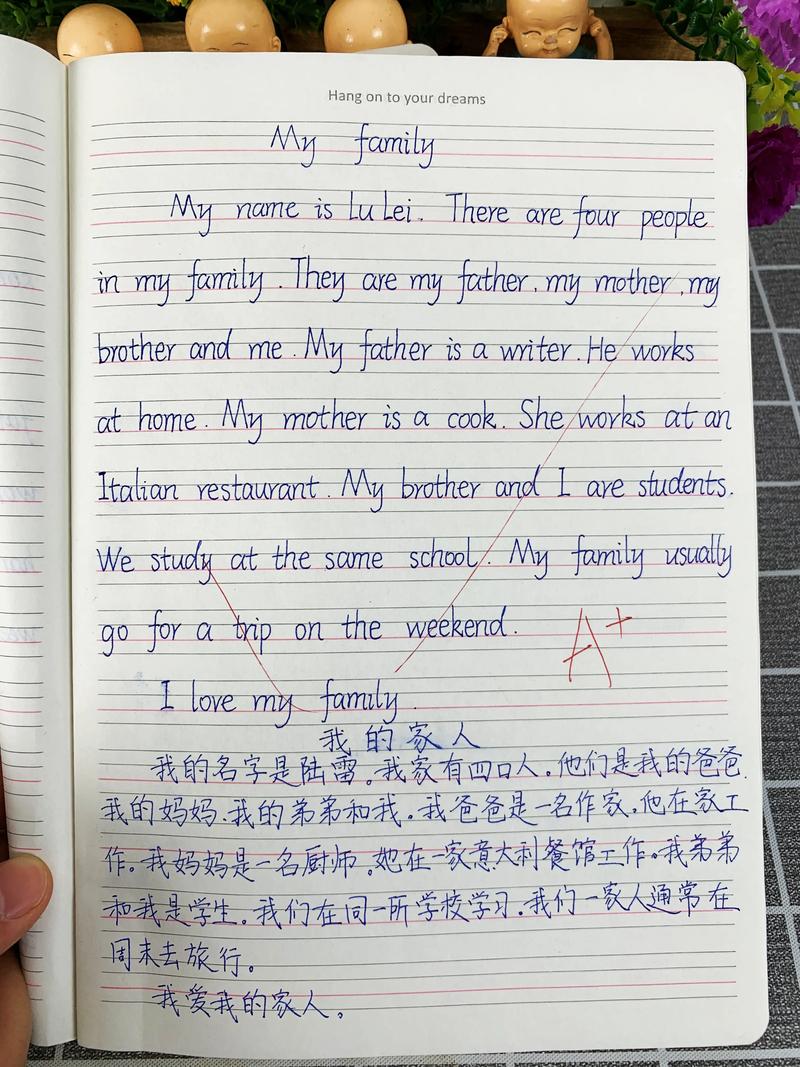 Hang on to your dreams
My family
My name is Lu Lei. There are four people
in my family. They are my father, my mother, my
brother and me. My father is a writer. He works
at home. My mother is a cook. She works at an
Italian restaurant. My brother and I are students.
We study at the same school. My family usually
go for a trip on the weekend.
A+
I love my family.
我的家人
我的名字是陆雷。我家有四口人。他们是我的爸爸、
我的妈妈、我的弟弟和我。我爸爸是一名作家,他在家工
作。我妈妈是一名厨师,她在一家意大利餐馆工作。我弟弟
和我是学生。我们在同一所学校学习。我们一家人通常在
周末去旅行。
我爱我的家人。